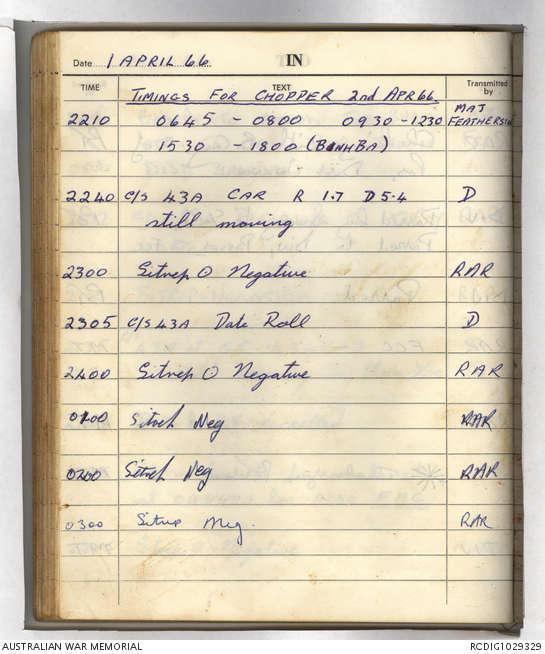 Date 1 APRIL 66 IN
TIME TEXT Transmitted by
TIMINGS FOR CHOPPER 2nd APR 66
2210 0645 - 0800 0930 - 1230 MAJ FEATHERSTON
1530 - 1800 (BINH BA)
2240 C/S 43A CAR R 1.7 D 5.4 D
still moving
2300 Sitrep O Negative RAR
2305 C/S 43A Date Roll D
2400 Sitrep O Negative RAR
0100 Sitrep Neg RAR
0200 Sitrep Neg RAR
0300 Sitrep Neg. RAR
AUSTRALIAN WAR MEMORIAL RCDIG1029329